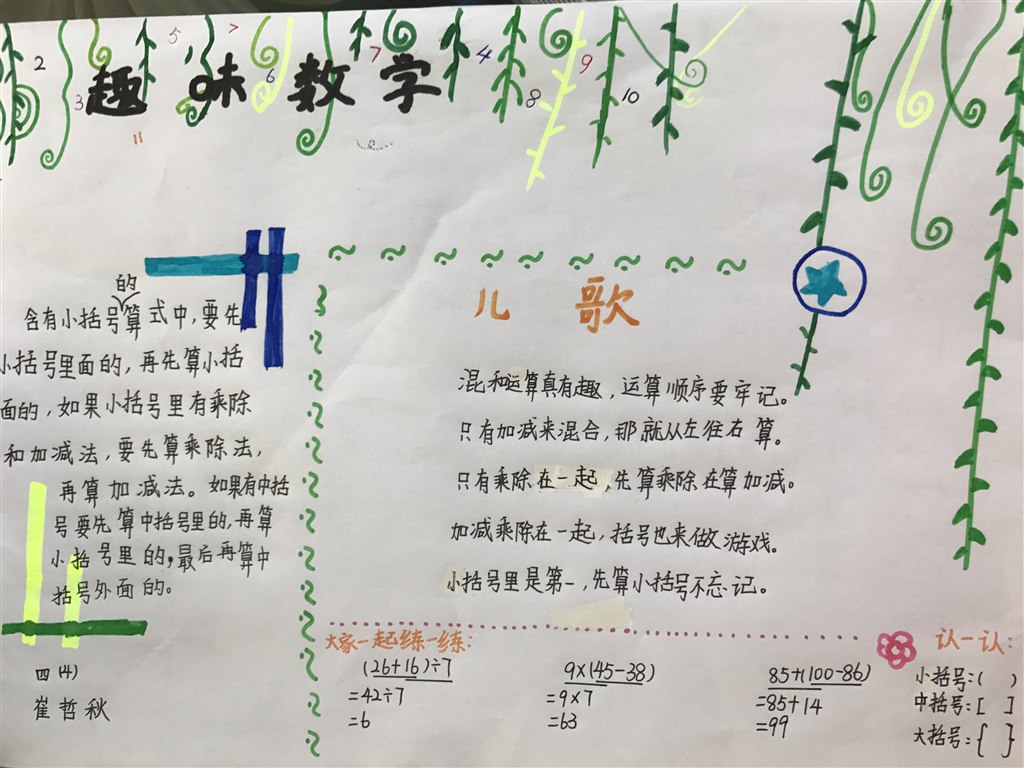 2 3 5 7 6 7 4 8 9 10 11
趣味数学
的
含有小括号算式中,要先
小括号里面的,再先算小括
面的,如果小括号里有乘除
和加减法,要先算乘除法,
再算加减法。如果有中括
号要先算中括号里的,再算
小括号里的,最后再算中
括号外面的。
四(4)
崔哲秋
儿歌
混和运算真有趣,运算顺序要牢记。
只有加减来混合,那就从左往右算。
只有乘除在一起,先算乘除在算加减。
加减乘除在一起,括号也来做游戏。
小括号里是第一,先算小括号不忘记。
大家一起练一练:
(26+16)÷7
=42÷7
=6
9×(45-38)
=9×7
=63
85+(100-86)
=85+14
=99
认一认:
小括号:( )
中括号:[ ]
大括号:{ }